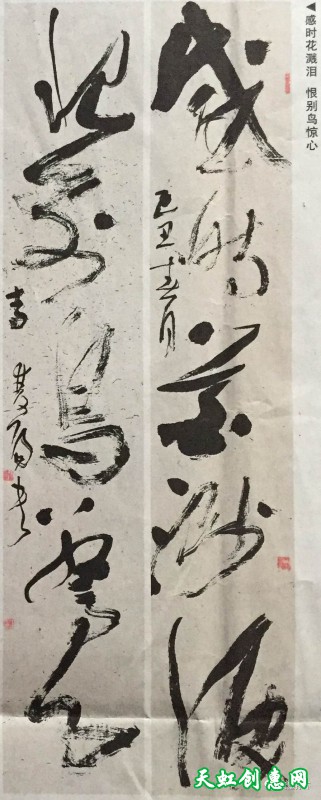 感时花溅泪 恨别鸟惊心
感时花溅泪
己丑十一月
恨别鸟惊心
天虹创意网